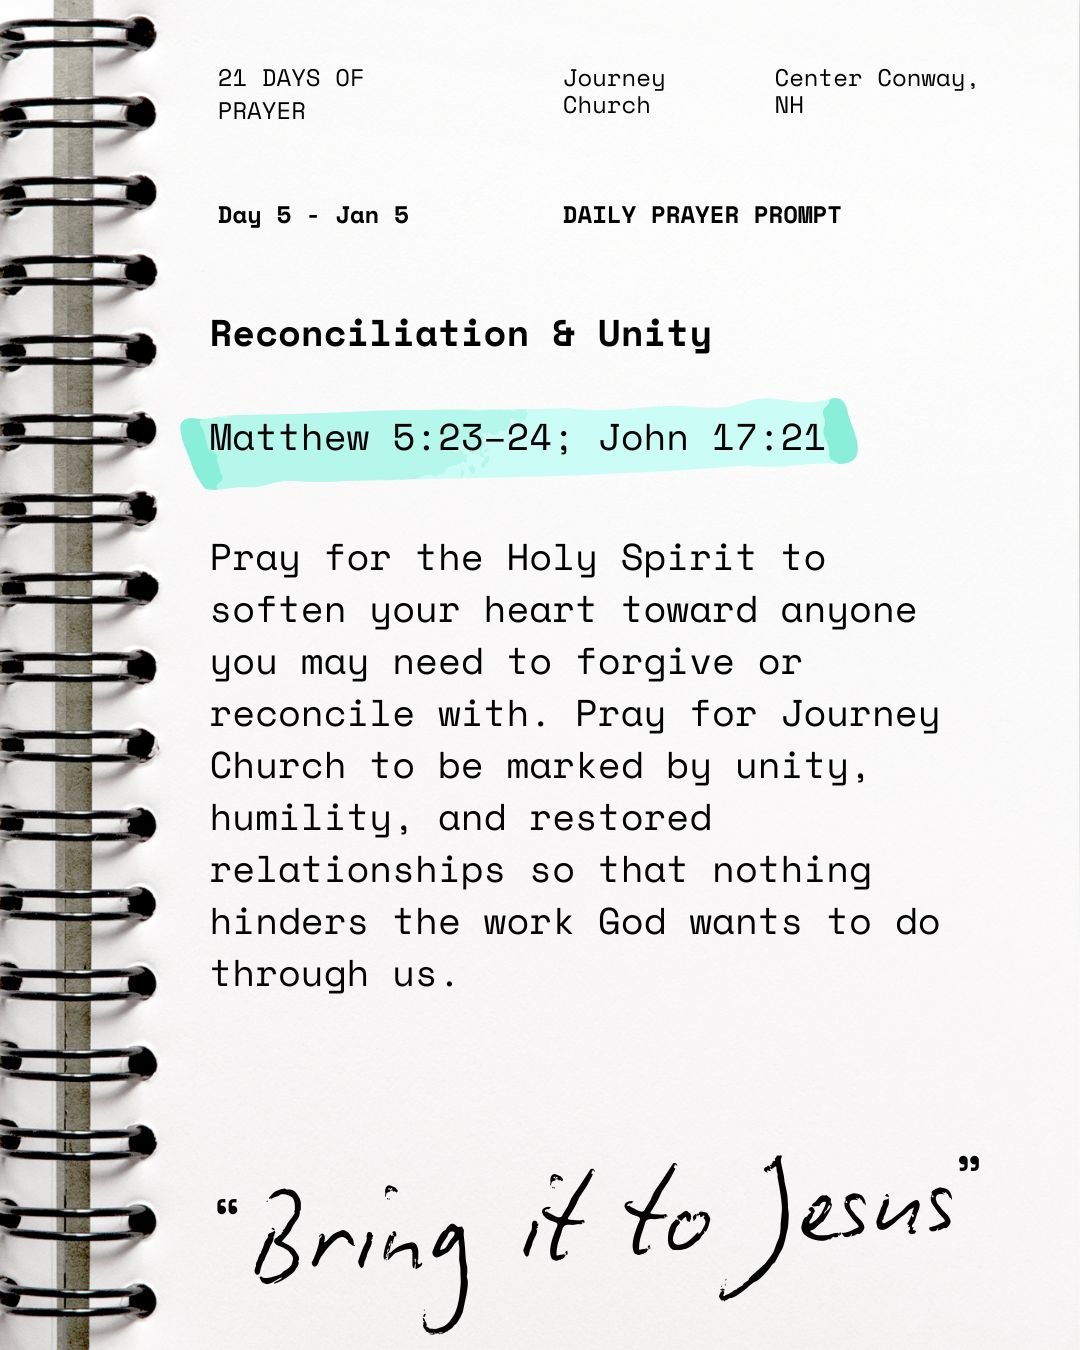 21 DAYS OF
PRAYER
Journey
Church
Center Conway,
NH
Day 5 - Jan 5
DAILY PRAYER PROMPT
Reconciliation & Unity
Matthew 5:23–24; John 17:21
Pray for the Holy Spirit to
soften your heart toward anyone
you may need to forgive or
reconcile with. Pray for Journey
Church to be marked by unity,
humility, and restored
relationships so that nothing
hinders the work God wants to do
through us.
“Bring it to Jesus”